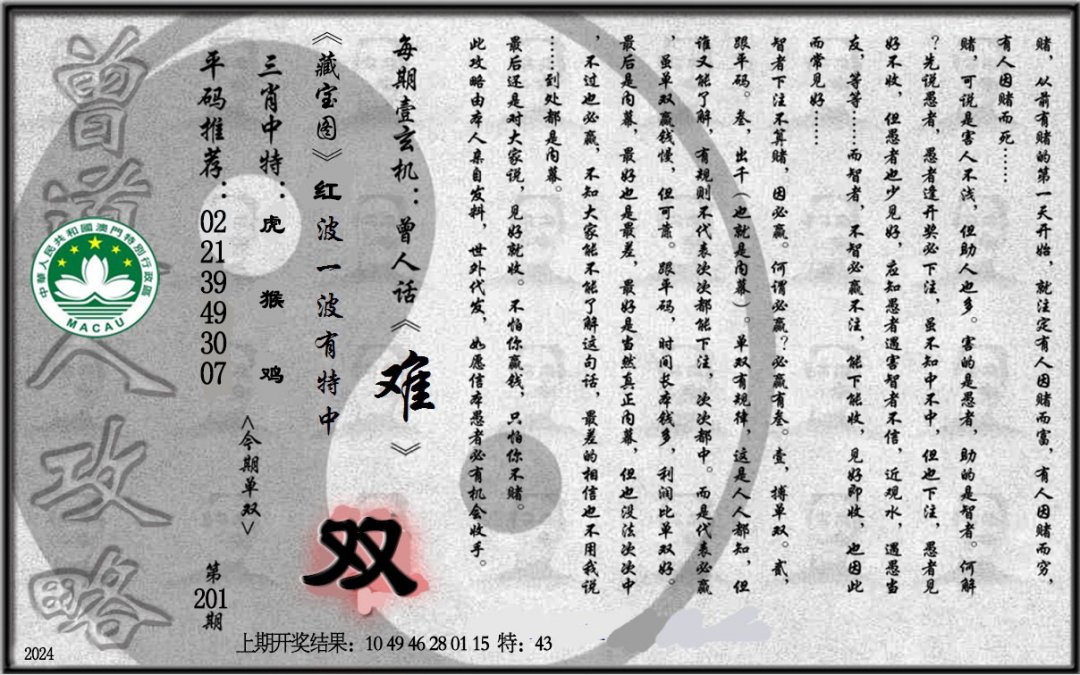 赌，从前有赌的第一天开始，就注定有人因赌而富，有人因赌而穷，
有人因赌而死……
赌，可说是害人不浅，但助人也多。害的是愚者，助的是智者。何解
？先说愚者，愚者逢开奖必下注，虽不知中不中，但也下注，愚者见
好不收，但愚者也少见好，应知愚者遇害智者不信，近观水，遇愚当
友，等等……而智者，不智必赢不注，能下能收，见好即收，也因此
而常见好……
智者下注不算赌，因必赢。何谓必赢？必赢有叁。壹，搏单双。贰，
跟平码。叁，出千（也就是内幕）。单双有规律，这是人人都知，但
谁又能了解，有规则不代表次次都能下注，次次都中。而是代表必赢
，虽单双赢钱慢，但可靠。跟平码，时间长本钱多，利润比单双好。
最后是内幕，最好也是最差，最好是当然真正内幕，但也没法次次中
，不过也必赢，不知大家能不能了解这句话，最差的相信也不用我说
……到处都是内幕。
最后还是对大家说，见好就收。不怕你赢钱，只怕你不赌。
此攻略由本人亲自发料，世外代发，如愿信本愚者必有机会收手。
每期壹玄机：曾人话《难》
《藏宝图》红波一波有特中
双
三肖中特：虎 猴 鸡
<今期单双>
平码推荐：02 21 39 49 30 07
第201期
曾道人攻略
中華人民共和國澳門特別行政區
MACAU
上期开奖结果：10 49 46 28 01 15 特：43
2024